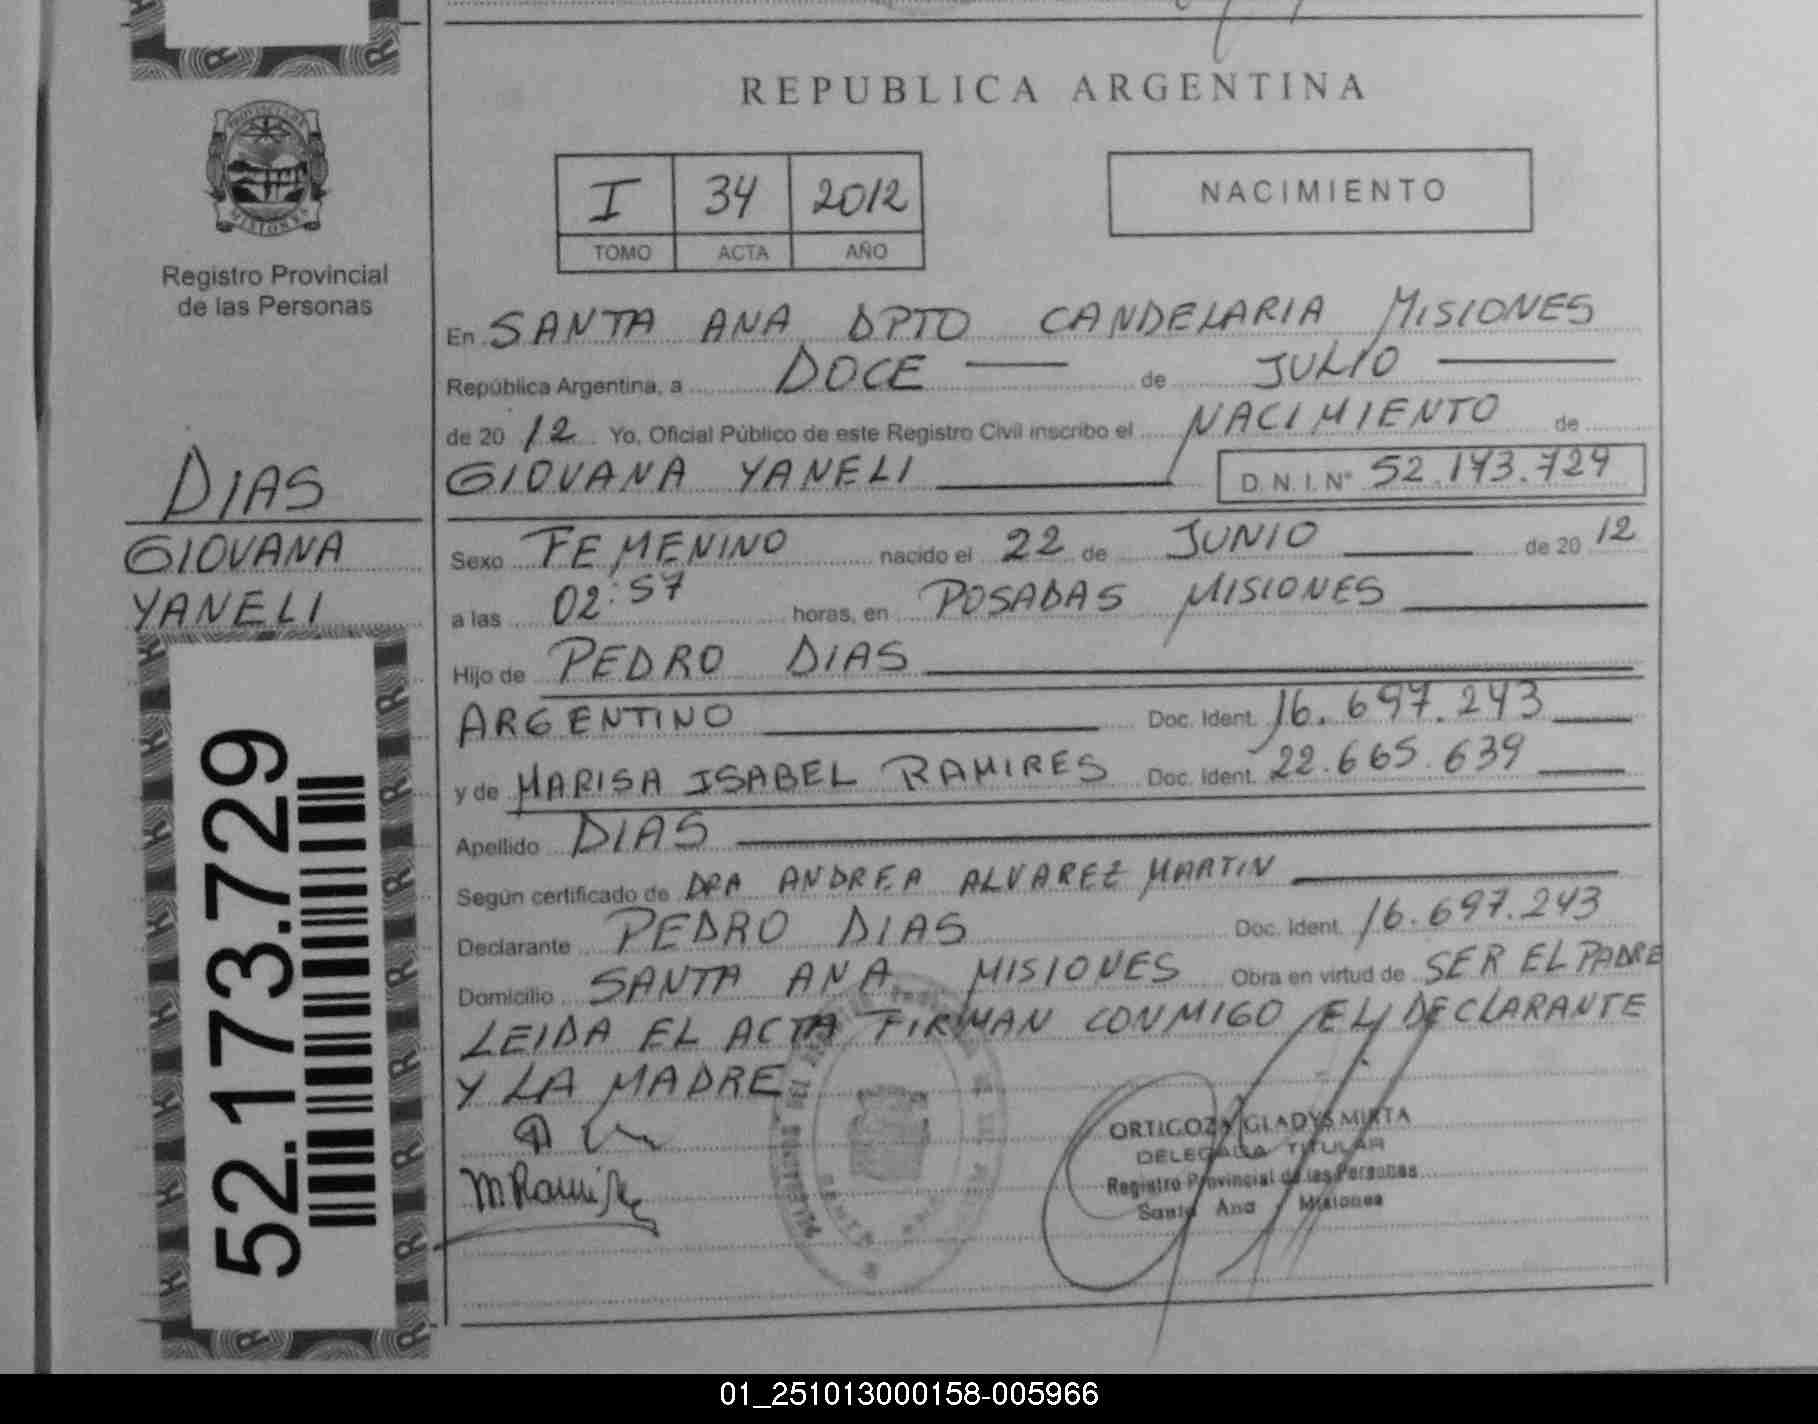 REPUBLICA ARGENTINA
I 34 2012
TOMO ACTA AÑO
NACIMIENTO
Registro Provincial
de las Personas
DIAS
GIOVANA
YANELI
52.173.729
En SANTA ANA DPTO CANDELARIA MISIONES
República Argentina, a DOCE de JULIO
de 20 12 Yo, Oficial Público de este Registro Civil inscribo el NACIMIENTO de
GIOVANA YANELI D. N. I. Nº 52.173.729
Sexo FEMENINO nacido el 22 de JUNIO de 20 12
a las 02:57 horas, en POSADAS MISIONES
Hijo de PEDRO DIAS
ARGENTINO Doc. Ident. 16.697.243
y de MARISA ISABEL RAMIRES Doc. Ident. 22.665.639
Apellido DIAS
Según certificado de DRA ANDREA ALVAREZ MARTIN
Declarante PEDRO DIAS Doc. Ident. 16.697.243
Domicilio SANTA ANA MISIONES Obra en virtud de SER EL PADRE
LEIDA EL ACTA FIRMAN CONMIGO EL DECLARANTE
Y LA MADRE
ORTIGOZA GLADYS MIRTA
DELEGADA TITULAR
Registro Provincial de las Personas
Santa Ana Misiones
01_251013000158-005966